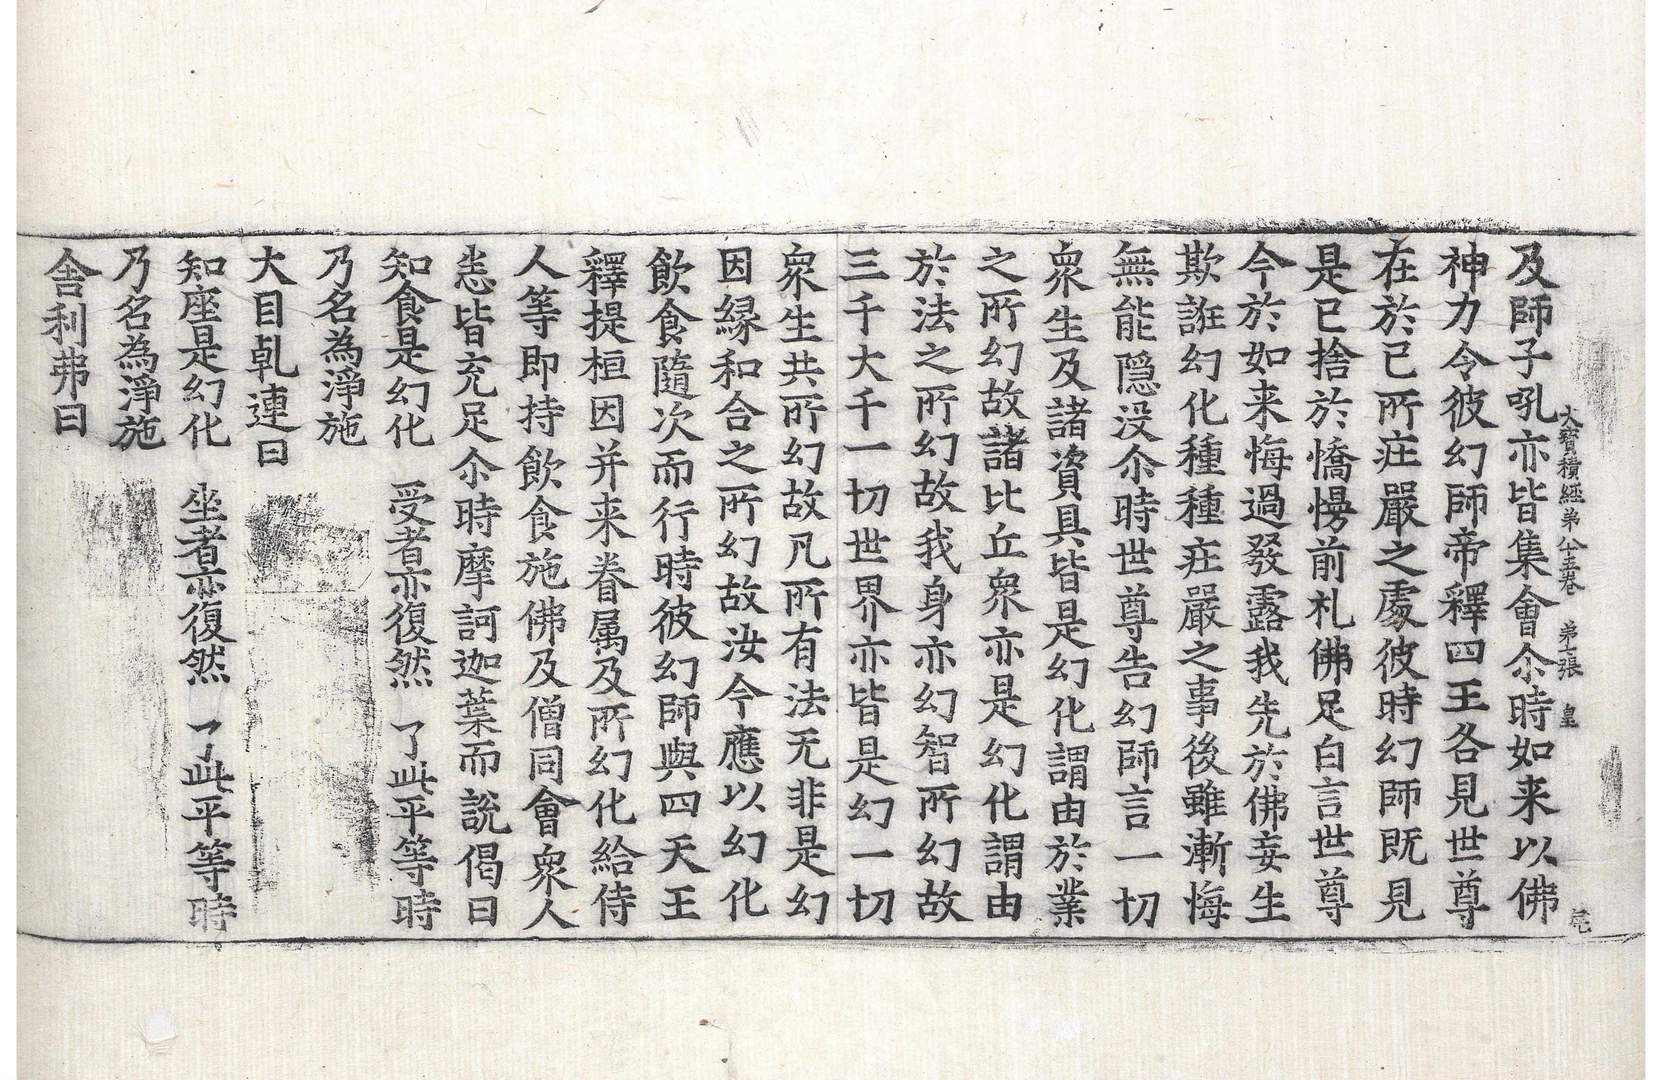 大寶積經第八十五卷　第七張　皇
及師子吼亦皆集會尒時如来以佛
神力令彼幻師帝釋四王各見世尊
在於已所疘嚴之處彼時幻師既見
是已捨於憍慢前礼佛足白言世尊
今於如来悔過發露我先於佛妄生
欺誑幻化種種疘嚴之事後雖漸悔
無能隠没尒時世尊告幻師言一切
衆生及諸資具皆是幻化謂由於業
之所幻故諸比丘衆亦是幻化謂由
於法之所幻故我身亦幻智所幻故
三千大千一切世界亦皆是幻一切
衆生共所幻故凡所有法无非是幻
因縁和合之所幻故汝今應以幻化
飲食隨次而行時彼幻師與四天王
釋提桓因并来眷属及所幻化給侍
人等即持飲食施佛及僧同會衆人
悉皆充足尒時摩訶迦葉而說偈曰
知食是幻化　受者亦復然　了此平等時
乃名為淨施
大目乹連曰
知座是幻化　坐者亦復然　了此平等時
乃名為淨施
舎利弗曰